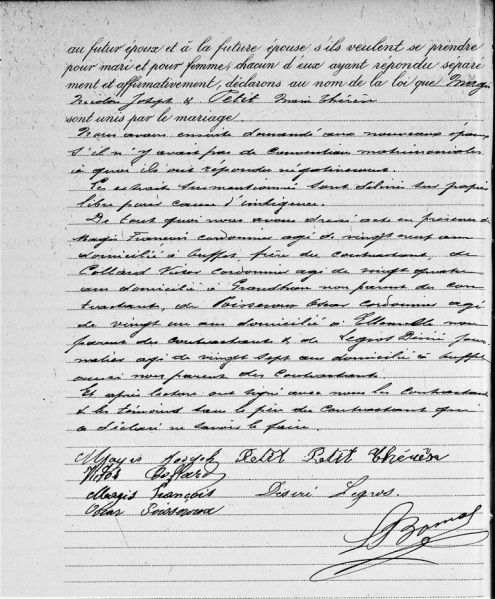 au futur époux et à la future épouse s'ils veulent se prendre
pour mari et pour femme, chacun d'eux ayant répondu séparé
ment et affirmativement, déclarons au nom de la loi que Magis
Nicolas Joseph & Petit Marie Thérèse
sont unis par le mariage.
Nous avons ensuite demandé aux nouveaux époux
s'il n'y avait pas de convention matrimoniales
à quoi ils ont répondu négativement.
Les extraits susmentionnés sont délivrés sur papier
libre pour cause d'indigence.
De tout quoi nous avons dressé acte en présence de
Magis François cordonnier agé de vingt neuf ans
domicilié à buffet, frère du contractant, de
Collard Victor cordonnier agé de vingt quatre
ans domicilié à non parent des con-
tractants, de cordonnier agé
de vingt un ans domicilié à non
parent des contractants & de Legros Désiré jour
nalier agé de vingt sept ans domicilié à buffet
aussi non parent des contractants.
Et après lecture ont signé avec nous les contractants
& les témoins sauf le père du contractant qui
a déclaré ne savoir le faire.
Magis Joseph Petit Petit Thérèse
Victor Collard
Magis François Désiré Legros.